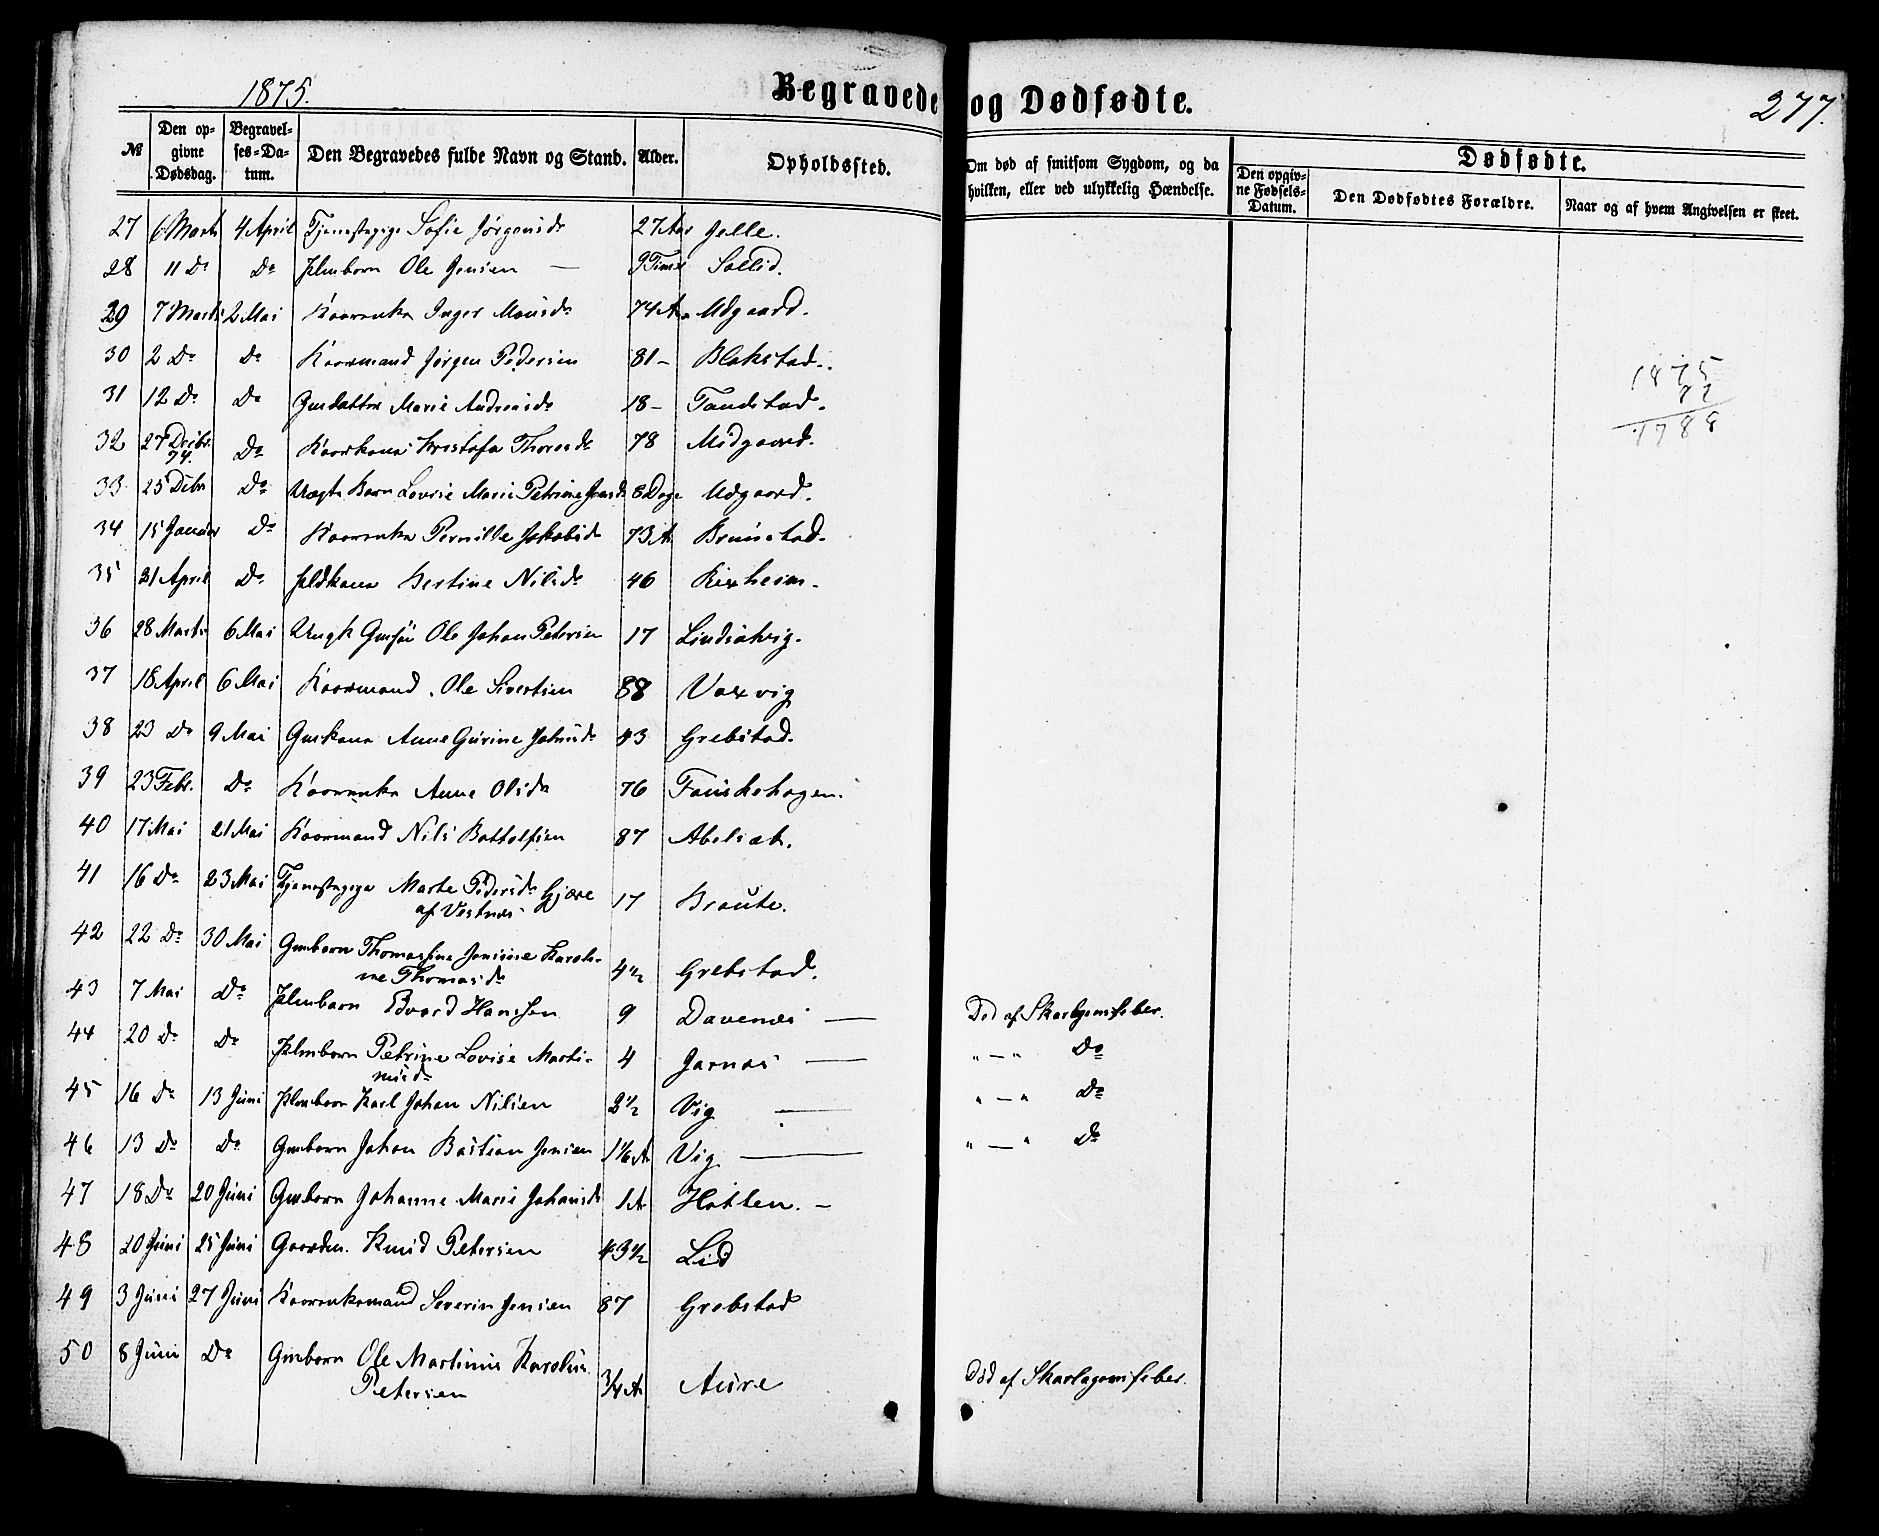 1875.
Begravede og Dødfødte.
277.
№ Den opgivne Dødsdag. Begravelses-Datum. Den Begravedes fulde Navn og Stand. Alder. Opholdssted. Om død af smitsom Sygdom, og da hvilken, eller ved ulykkelig Hændelse. Dødfødte. Den opgivne Fødsels-Datum. Den Dødfødtes Forældre. Naar og af hvem Angivelsen er skeet.
27 6 Marts 4 April Sofie Jørgensd. 27 Aar Jelle.
28 11 Do Do Ole Jensen — 9 Timer Sollid.
29 7 Marts 2 Mai Kaarenke Inger Monsd. 74 A. Udgaard.
30 2 Do Do Kaarmand Jørgen Pedersen 81 – Blakstad.
31 12 Do Do Gmdatter Marie Andreasd. 18 – Tandstad.
32 27 Decbr. 74. Do Kaarkone Kristofa Thoresd. 78 Midgaard.
33 25 Debr Do Barn Lovise Marie Petrine 8 Dage Udgaard.
34 15 Januar Do Kaarenke Pernille Jakobsd. 73 A Brunstad.
35 21 April Do Bertine Nilsd. 46 Rexheim.
36 28 Marts 6 Mai Ungk Ole Johan Petersen 17
37 18 April 6 Mai Kaarmand Ole Sivertsen 88 Vaxvig
38 23 Do 9 Mai Gmkone Anne Gurine 43 Grebstad.
39 23 Febr. Do Kaarenke Anne Olsd. 76 Fauskehagen.
40 17 Mai 21 Mai Kaarmand Nils Bottolfsen 87 Abelsæt.
41 16 Do 23 Mai Marte Pedersd. Gjære
af Vestnes 17 Braute.
42 22 Do 30 Mai Gmbarn Thomasine Jensine Karoli-
ne Thomasd. 4½ Grebstad.
43 7 Mai Do Baard Hanssen 9 Davenes — Død af Skarlagensfeber.
44 20 Do Do Petrine Lovise Marti-
nusd. 4 Jarnes — " — " Do
45 16 Do 13 Juni Karl Johan Nilsen 2½ Vig — " — " Do
46 13 Do Do Gmbarn Johan Bastian Jensen 1 1/6 A Vig — " — " Do
47 18 Do 20 Juni Gmbarn Johanne Marie Johansd. 1 A Hatlen. –
48 20 Juni 25 Juni Gaarden. Knud Petersen 43½ Lid
49 3 Juni 27 Juni Kaarenkemand Severin Jensen 87 Grebstad
50 8 Juni Do Gmbarn Ole Martinus Karolius
Petersen ¾ A Aure Død af Skarlagensfeber.
1875
1788